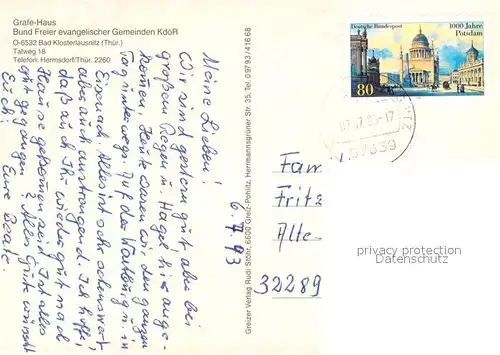 Grafe-Haus
Bund Freier evangelischer Gemeinden KdöR
O-6532 Bad Klosterlausnitz (Thür.)
Talweg 18
Telefon: Hermsdorf/Thür. 2260
Meine Lieben!
Wir sind gestern gut, aber bei
großem Regen u. Hagel hier ange-
kommen. Heute waren wir den ganzen
Tag unterwegs. Auf der Wartburg u. in
Eisenach. Alles ist sehr sehenswert
aber auch anstrengend. Ich hoffe,
daß auch Ihr wieder gut nach
Hause gekommen seid. Ist alles
gut gegangen? Alles Gute wünscht
Euch!
Eure Beate.
6.7.93
Greizer Verlag Rudi Stöhr, 6600 Greiz-Pohlitz, Herrmannsgrüner Str. 35, Tel. 09793/41668
Deutsche Bundespost
1000 Jahre
Potsdam
80
07639
Fam
Fritz
Alte-
32289
privacy protection
Datenschutz